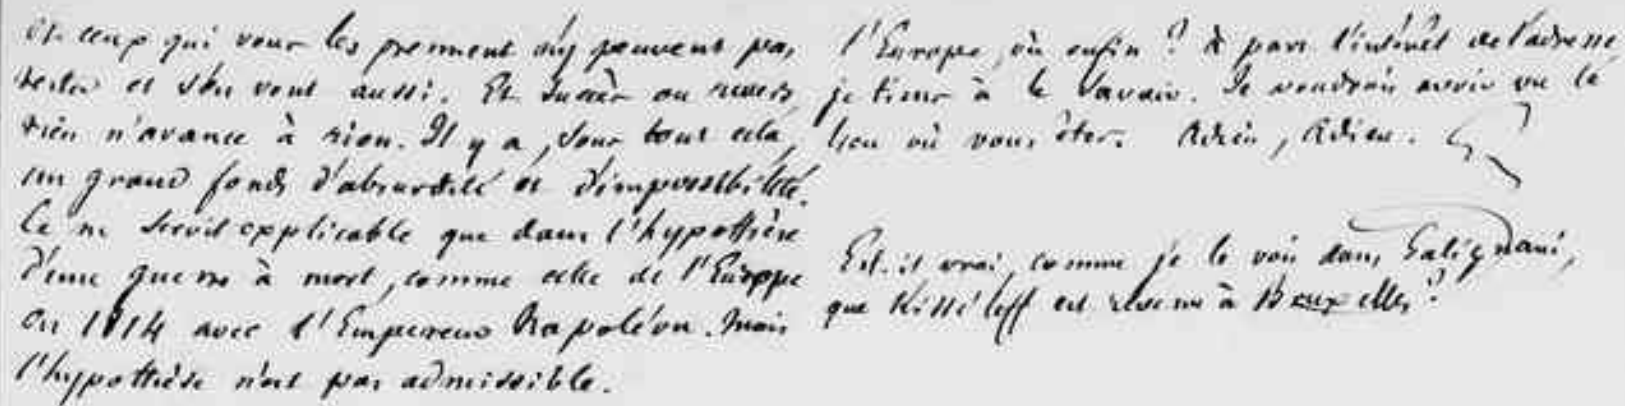 et ceux qui vous les prennent n'y peuvent pas
rester et s'en vont aussi. Et succès ou revers,
rien n'avance à rien. Il y a, sous tout cela,
un grand fonds d'absurdité et d'impossibilité.
Ce ne seroit explicable que dans l'hypothèse
d'une guerre à mort, comme celle de l'Europe
en 1814 avec l'Empereur Napoléon. Mais
l'hypothèse n'est pas admissible.
l'Europe, où enfin ? à part l'intérêt de l'adresse,
je tiens à le savoir. Je voudrois avoir vu le
lieu où vous êtes. Adieu, Adieu. G
Est-il vrai, comme je le vois dans Galignani,
que Kisséleff est revenu à Bruxelles ?